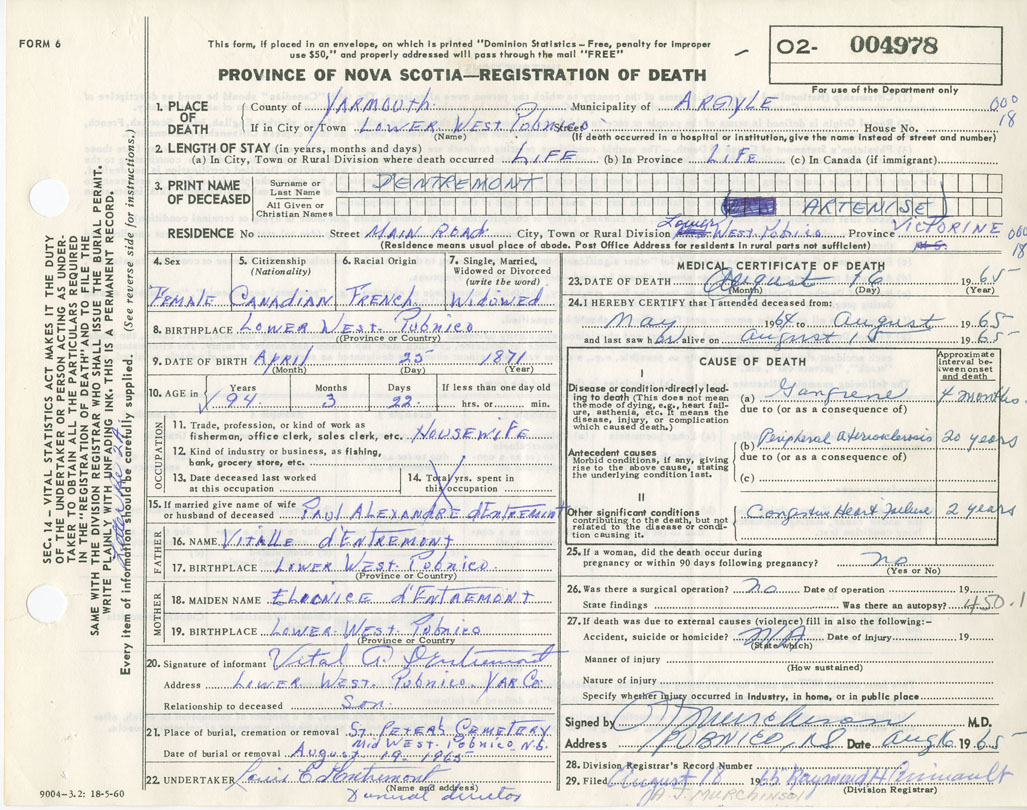 FORM 6
This form, if placed in an envelope, on which is printed "Dominion Statistics – Free, penalty for improper
use $50," and properly addressed will pass through the mail "FREE"
PROVINCE OF NOVA SCOTIA—REGISTRATION OF DEATH
02- 004978
For use of the Department only
1. PLACE OF DEATH County of YARMOUTH Municipality of ARGYLE 000 18
If in City or Town LOWER WEST PUBNICO Street House No.
(Name) (If death occurred in a hospital or institution, give the name instead of street and number)
2. LENGTH OF STAY (in years, months and days)
(a) In City, Town or Rural Division where death occurred LIFE (b) In Province LIFE (c) In Canada (if immigrant)
3. PRINT NAME OF DECEASED Surname or Last Name D'ENTREMONT
All Given or Christian Names ARTENISE) VICTORINE
RESIDENCE No Street MAIN ROAD City, Town or Rural Division Lower WEST PUBNICO Province N.S. 000 18
(Residence means usual place of abode. Post Office Address for residents in rural parts not sufficient)
4. Sex 5. Citizenship (Nationality) 6. Racial Origin 7. Single, Married, Widowed or Divorced (write the word)
FEMALE CANADIAN FRENCH WIDOWED
8. BIRTHPLACE LOWER WEST PUBNICO
(Province or Country)
9. DATE OF BIRTH APRIL 25 1871
(Month) (Day) (Year)
10. AGE in Years 94 Months 3 Days 22 If less than one day old hrs. or min.
OCCUPATION
11. Trade, profession, or kind of work as
fisherman, office clerk, sales clerk, etc. HOUSEWIFE
12. Kind of industry or business, as fishing,
bank, grocery store, etc.
13. Date deceased last worked
at this occupation
14. Total yrs. spent in
this occupation
15. If married give name of wife
or husband of deceased PAUL ALEXANDRE d'ENTREMONT
FATHER
16. NAME VITALLE d'ENTREMONT
17. BIRTHPLACE LOWER WEST PUBNICO
(Province or Country)
MOTHER
18. MAIDEN NAME d'ENTREMONT
19. BIRTHPLACE LOWER WEST PUBNICO
(Province or Country)
20. Signature of informant Vital A. D'Entremont
Address LOWER WEST PUBNICO YAR CO
Relationship to deceased SON
21. Place of burial, cremation or removal ST. PETERS CEMETERY
MID WEST PUBNICO N.S.
Date of burial or removal AUGUST 19 - 1965
22. UNDERTAKER Louis E d'Entremont
(Name and address)
Funeral director
9004-3.2: 18-5-60
MEDICAL CERTIFICATE OF DEATH
23. DATE OF DEATH August 16 1965
(Month) (Day) (Year)
24. I HEREBY CERTIFY that I attended deceased from:
May 1964 to August 1965
and last saw her alive on August 15 1965
CAUSE OF DEATH
Approximate interval between onset and death
I
Disease or condition directly leading to death (This does not mean the mode of dying, e.g., heart failure, asthenia, etc. It means the disease, injury, or complication which caused death)
(a) Gangrene 4 months
due to (or as a consequence of)
Antecedent causes
Morbid conditions, if any, giving rise to the above cause, stating the underlying condition last.
(b) Peripheral Atherosclerosis 20 years
due to (or as a consequence of)
(c)
II
Other significant conditions
contributing to the death, but not related to the disease or condition causing it.
Congestive Heart Failure 2 years
25. If a woman, did the death occur during
pregnancy or within 90 days following pregnancy? no
(Yes or No)
26. Was there a surgical operation? no Date of operation 19
State findings Was there an autopsy? 450.1
27. If death was due to external causes (violence) fill in also the following:-
Accident, suicide or homicide? N/A Date of injury 19
(State which)
Manner of injury
(How sustained)
Nature of injury
Specify whether injury occurred in Industry, in home, or in public place
Signed by Murchison M.D.
Address PUBNICO, N.S. Date Aug 16 1965
28. Division Registrar's Record Number
29. Filed August 18 1965 Raymond H
(Division Registrar)
A.J. MURCHISON
SEC. 14 – VITAL STATISTICS ACT MAKES IT THE DUTY
OF THE UNDERTAKER OR PERSON ACTING AS UNDER-
TAKER TO OBTAIN ALL THE PARTICULARS REQUIRED
IN THE "REGISTRATION OF DEATH" AND FILE THE
SAME WITH THE DIVISION REGISTRAR WHO SHALL ISSUE THE BURIAL PERMIT.
WRITE PLAINLY WITH UNFADING INK-THIS IS A PERMANENT RECORD.
Every item of information should be carefully supplied. (See reverse side for instructions.)